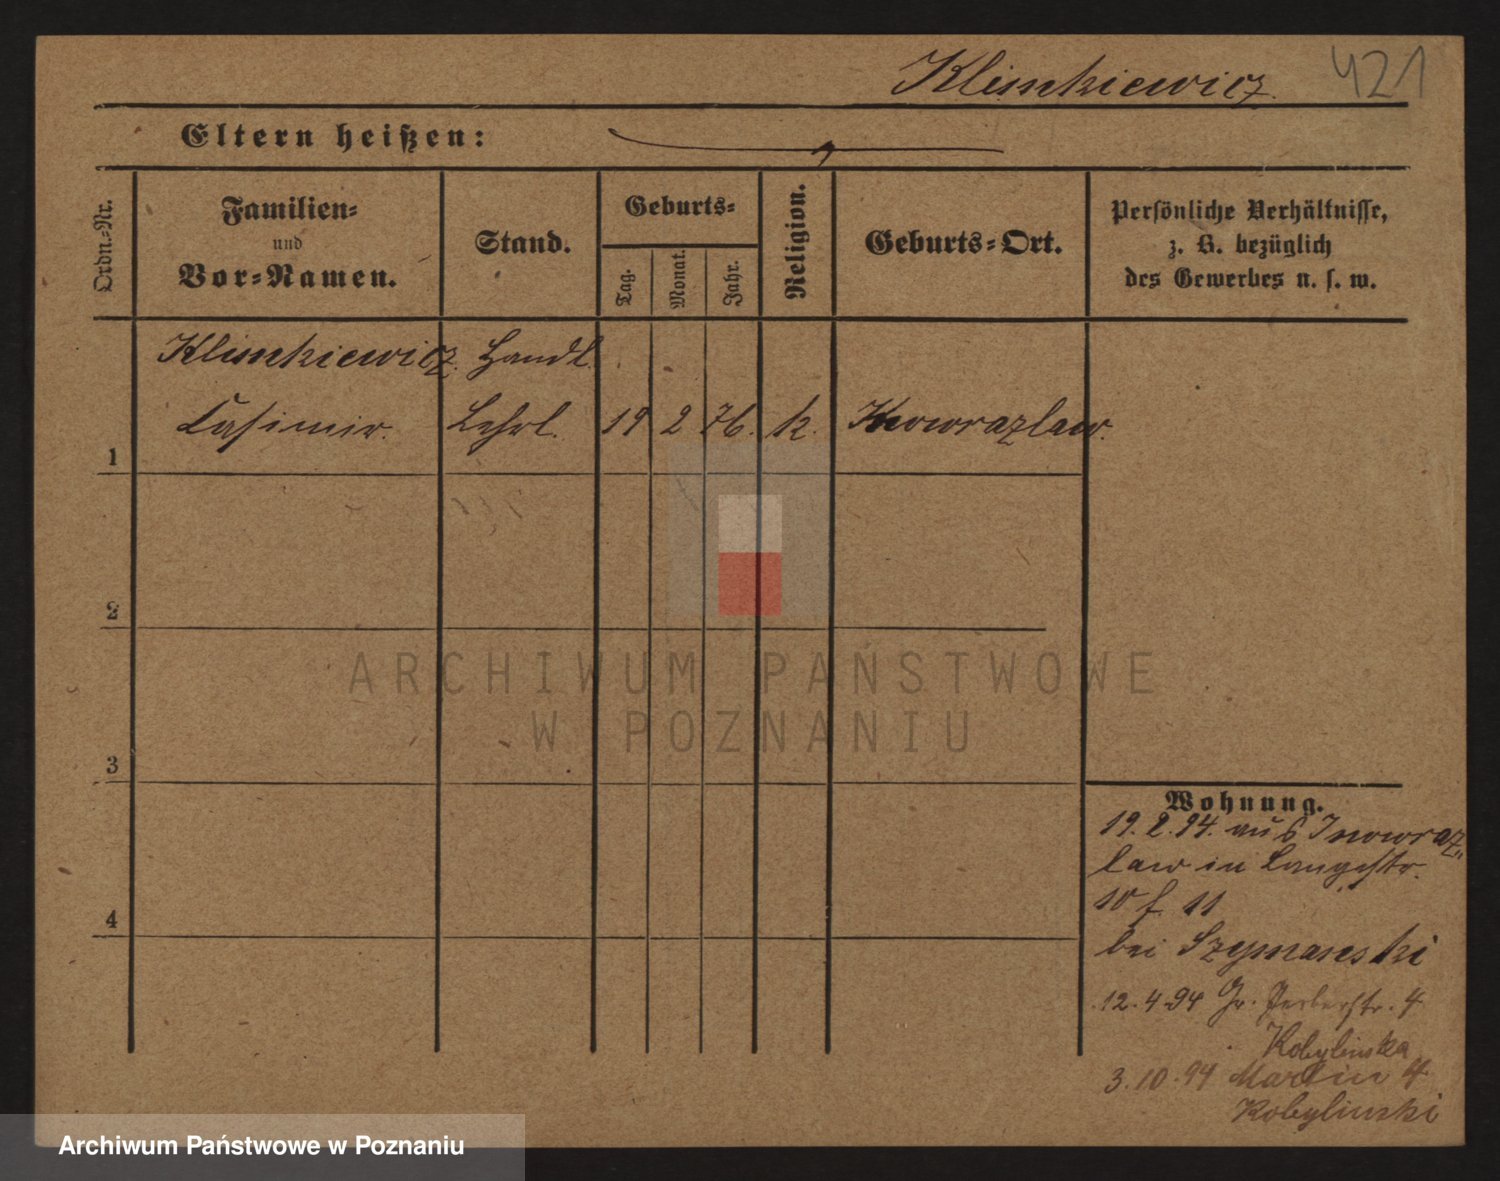 Klimkiewicz. 421
Eltern heißen:
Ordn.=Nr.
Familien=
und
Vor=Namen.
Stand.
Geburts=
Tag.
Monat.
Jahr.
Religion.
Geburts=Ort.
Persönliche Verhältnisse,
z. B. bezüglich
des Gewerbes u. s. w.
Klimkiewicz. Handl.
1 Casimir. Lehrl. 19 2 76. k. Inowrazlaw.
2
3
4
Wohnung.
19. 2. 94. aus Inowraz„
law in Langestr.
10 f. 11
bei Szymanski
12. 4. 94 Gr. Gerberstr. 4
Kobylinska
3. 10. 94 Martin 4
Kobylinski
ARCHIWUM PAŃSTWOWE
W POZNANIU
Archiwum Państwowe w Poznaniu